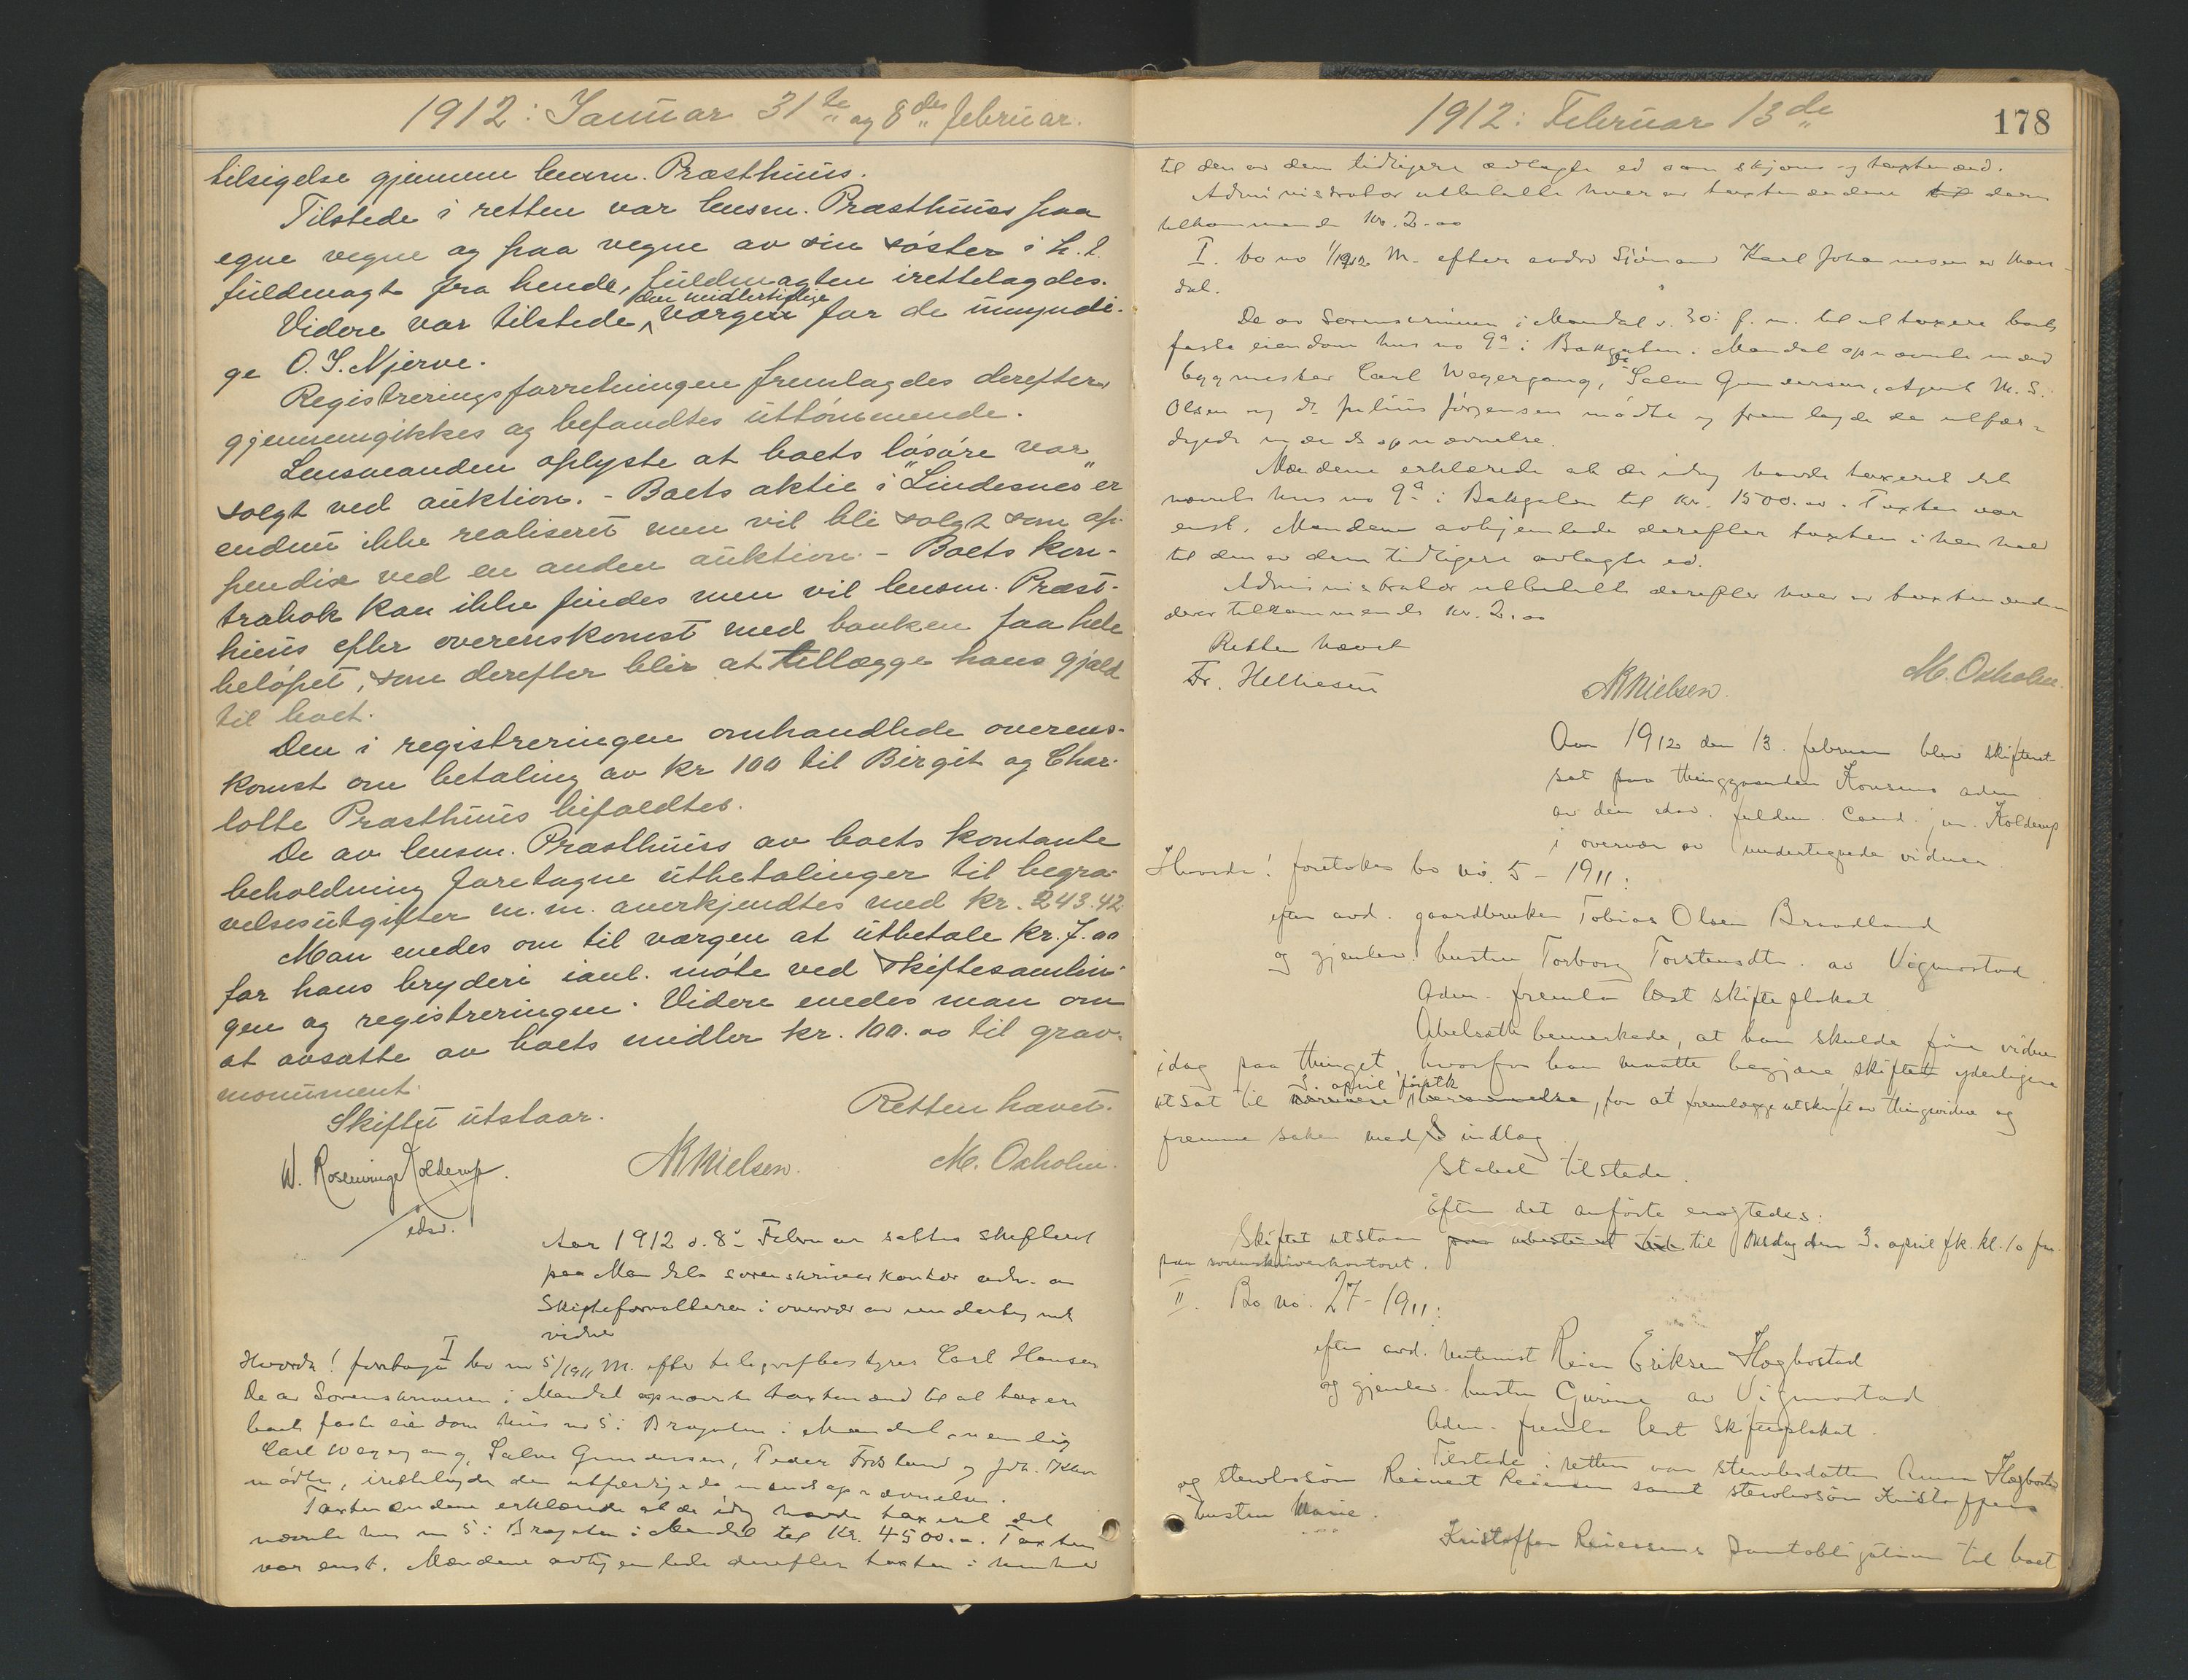 1912: Januar 31te og 8des februar.
tilsigelse gjennem lensm. Præsthuus.
Tilstede i retten var lensm. Præsthuus paa
egne vegne og paa vegne av sin søster i h. t.
fuldmagt fra hende, fuldmagten irettelagdes.
Videre var tilstede den midlertidige værgen for de umyndi-
ge O. S. Njerve.
Registreringsforretningen fremlagdes derefter
gjennemgikkes og befandtes uttømmende.
Lensmanden oplyste at boets løsøre var
solgt ved auktion. - Boets aktie i "Lindesnes" er
endnu ikke realiseret men vil bli solgt som ap-
pendix ved en anden auktion. - Boets kon-
trabok kan ikke findes men vil lensm. Præst-
huus efter overenskomst med banken faa hele
beløpet, som derefter blir at tillægge hans gjæld
til boet.
Den i registreringen omhandlede overens-
komst om betaling av kr 100 til Birgit og Char-
lotte Præsthuus bifaldtes.
De av lensm. Præsthuus av boets kontante
beholdning foretagne utbetalinger til begra-
velsesutgifter m.m. anerkjendtes med kr. 243.42
Man enedes om til værgen at utbetale kr. 7.00
for hans bryderi ianl. møte ved skiftesamlin-
gen og registreringen. Videre enedes man om
at avsætte av boets midler kr. 100.00 til grav-
monument.
Skiftet utstaar. Retten hævet.
W. Rosenvinge Kolderup. N Nielsen. M. Oxholm.
edsv.
Aar 1912 d. 8de Februar sattes skifteret
paa Mandals sorenskriverkontor adm. av
Skifteforvalteren i overvær av undertegnede
vidner
Hvorda! foretoges I bo no 5/1911 M. efter telegrafbestyrer Carl Hansen
De av Sorenskriveren i Mandal opnævnte taxtmænd til at taxere
boets faste eiendom hus no 5 i Brogaten i Mandal nemlig
Carl Wegergang, Salve Gundersen, Peder Frøsland og
mødte, irettelagde den utfærdigede mændsopnævnelse.
Taxtmændene erklærede at de idag havde taxeret det
nævnte hus no 5 i Brogaten i Mandal til Kr. 4500.00. Taxten
var enst. Mændene avhjemlede derefter taxten i henhold
1912: Februar 13de
178
til den av dem tidligere avlagte ed som skjøns- og taxtmænd.
Administrator utbetalte hver av taxtmændene dem
tilkommende kr. 2.00
I. bo no 1/1912 M. efter avdøde Sjømand Karl Johannesen av Man-
dal.
De av Sorenskriveren i Mandal d. 30. f. m. til at taxere boets
faste eiendom hus no 9a i Bakgaten i Mandal opnævnte mænd
bygmester Carl Wegergang, do Salve Gundersen, Agent M. S.
Olsen og do Julius Jørgensen mødte og fremlagde den utfær-
digede mændsopnævnelse.
Mændene erklærede at de idag havde taxeret det
nævnte hus no 9a i Bakgaten til kr. 1500.00. Taxten var
enst. Mændene avhjemlede derefter taxten i henhold
til den av dem tidligere avlagte ed.
Administrator utbetalte derefter hver av taxtmændene
deres tilkommende kr. 2.00
Retten hævet
Fr. Helliesen N Nielsen. M. Oxholm.
Aar 1912 den 13. februar blev skifteret
sat paa thinggaarden Konsmo adm
av den edsv. fuldm. Cand. jur. Kolderup
i overvær av undertegnede vidner
Hvorda! foretokes bo no. 5 - 1911:
efter avd. gaardbruker Tobias Olsen Brædland
og gjenlev. hustru Torborg Torstensdtr. av Vigmostad
Adm. fremla læst skifteplakat.
Abelsæth bemerkede, at han skulde føre vidner
idag paa thinget, hvorfor han maatte begjære skiftet yderligere
utsat til 3. april førstk, for at fremlægge utskrift av thingsvidne og
fremme saken med indlæg
Stabel tilstede.
Efter det anførte eragtedes:
Skiftet utstaar paa ubestemt tid til onsdag den 3. april fk. kl. 10 fm.
paa sorenskriverkontoret.
II. Bo no. 27 - 1911:
efter avd. rentenist Reier Eriksen Hægbostad
og gjenlev. hustru Gurine av Vigmostad
Adm. fremla læst skifteplakat.
Tilstede i retten var stervbosdatter Anna Hægbostad
og stervbosøn Reinert Reiersen samt stervbosøn Kristoffers
hustru Marie.
Kristoffer Reiersens pantobligation til boet